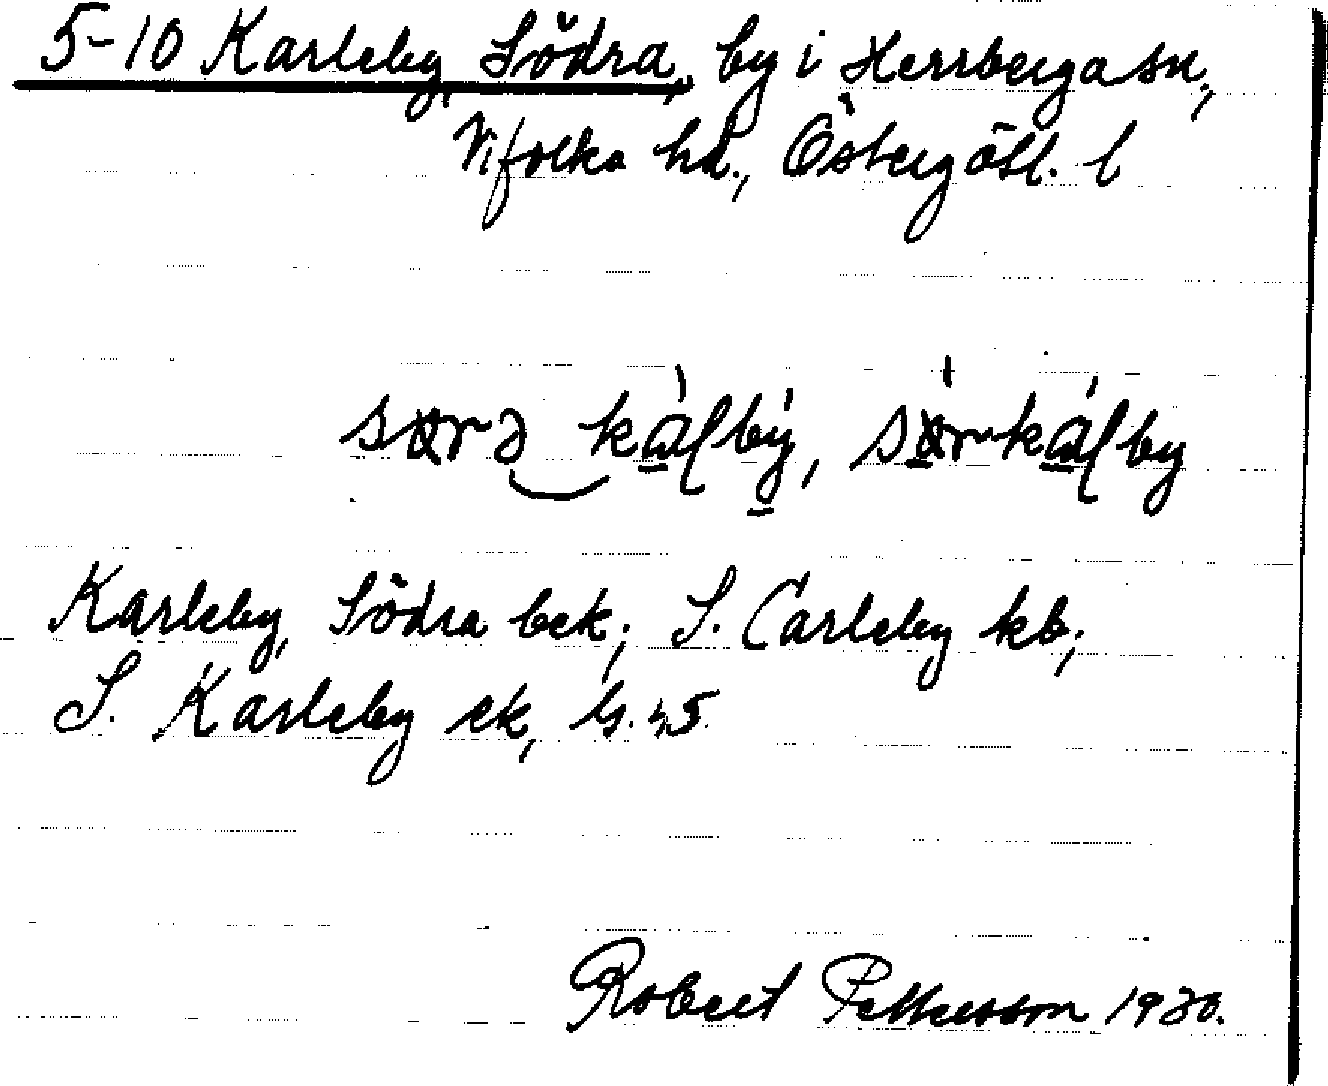 5-10 Karleby, Södra, by i Herrberga sn.,
Vifolka hd., Östergötl. l
Karleby, Södra bek; S. Carleby kb;
S. Karleby ek,
Robert Pettersson 1930.